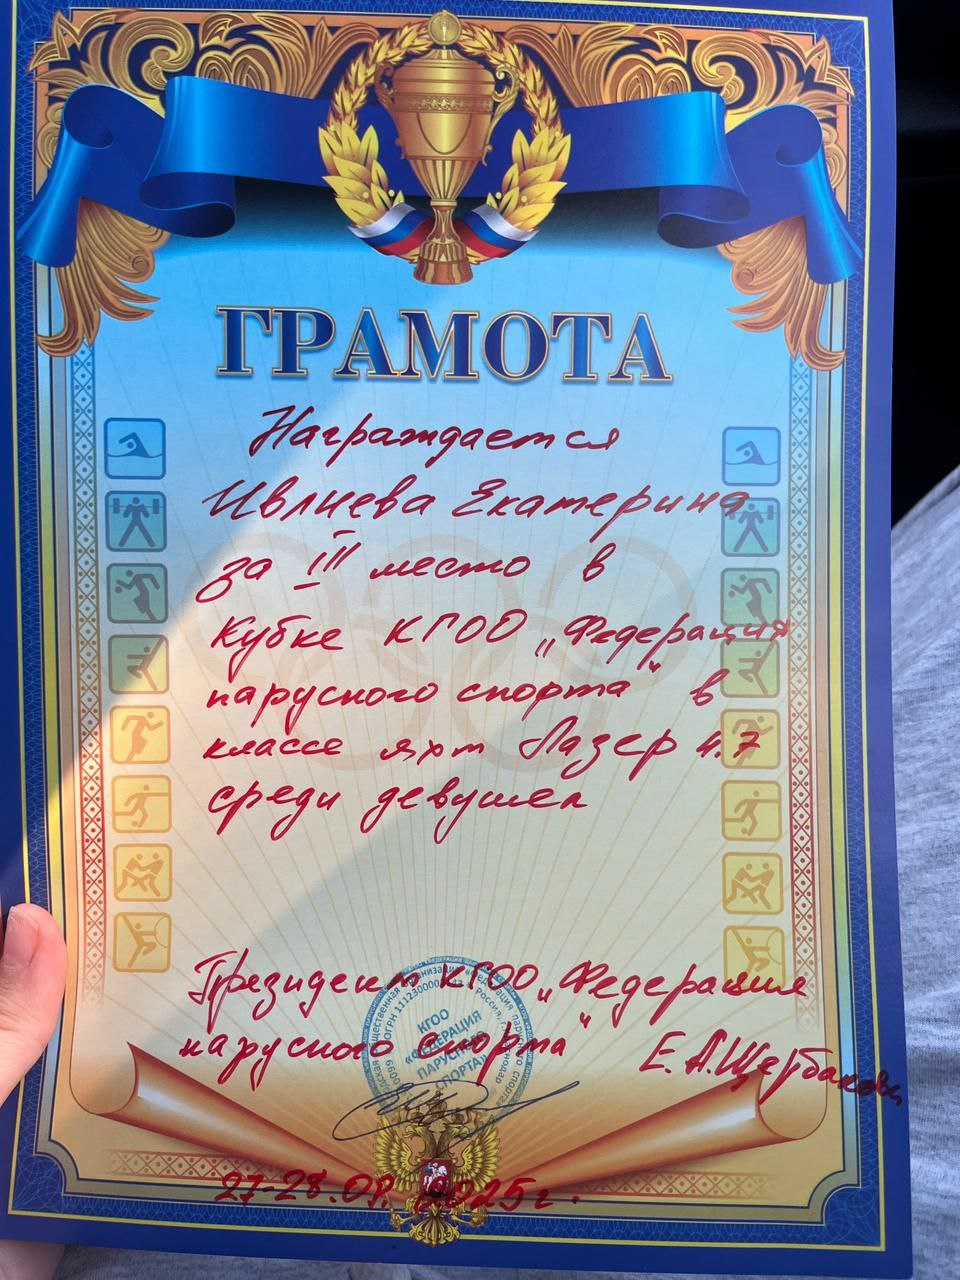 ГРАМОТА
Награждается
Ивлиева Екатерина
за III место в
Кубке КГОО „Федерация
парусного спорта" в
классе яхт Лазер 4.7
среди девушек
Президент КГОО „Федерация
парусного спорта" Е.А.Щербакова
КГОО
«ФЕДЕРАЦИЯ
ПАРУСНОГО
СПОРТА»
2025г.